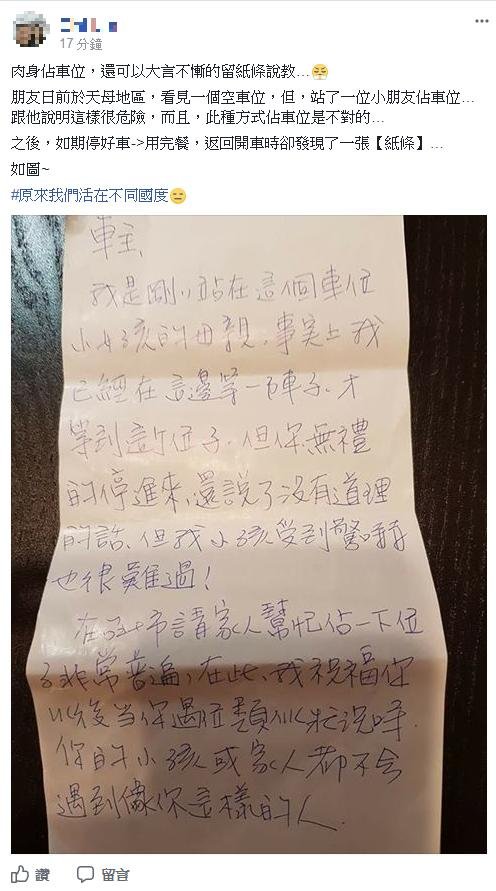 17 分鐘
肉身佔車位，還可以大言不慚的留紙條說教...
朋友日前於天母地區，看見一個空車位，但，站了一位小朋友佔車位...
跟他說明這樣很危險，而且，此種方式佔車位是不對的...
之後，如期停好車->用完餐，返回開車時卻發現了一張【紙條】...
如圖~
#原來我們活在不同國度
車主，
我是剛才站在這個車位
小女孩的母親，事實上我
已經在這邊等一下陣子，才
等到這位子，但你無禮
的停進來，還說了沒有道理
的話，但我小孩受到驚嚇
也很難過！
在石市請家人幫忙佔一下位
子非常普遍，在此，我祝福你
以後當你遇這類似狀況時，
你的小孩或家人都不會
遇到像你這樣的人.
讚 留言